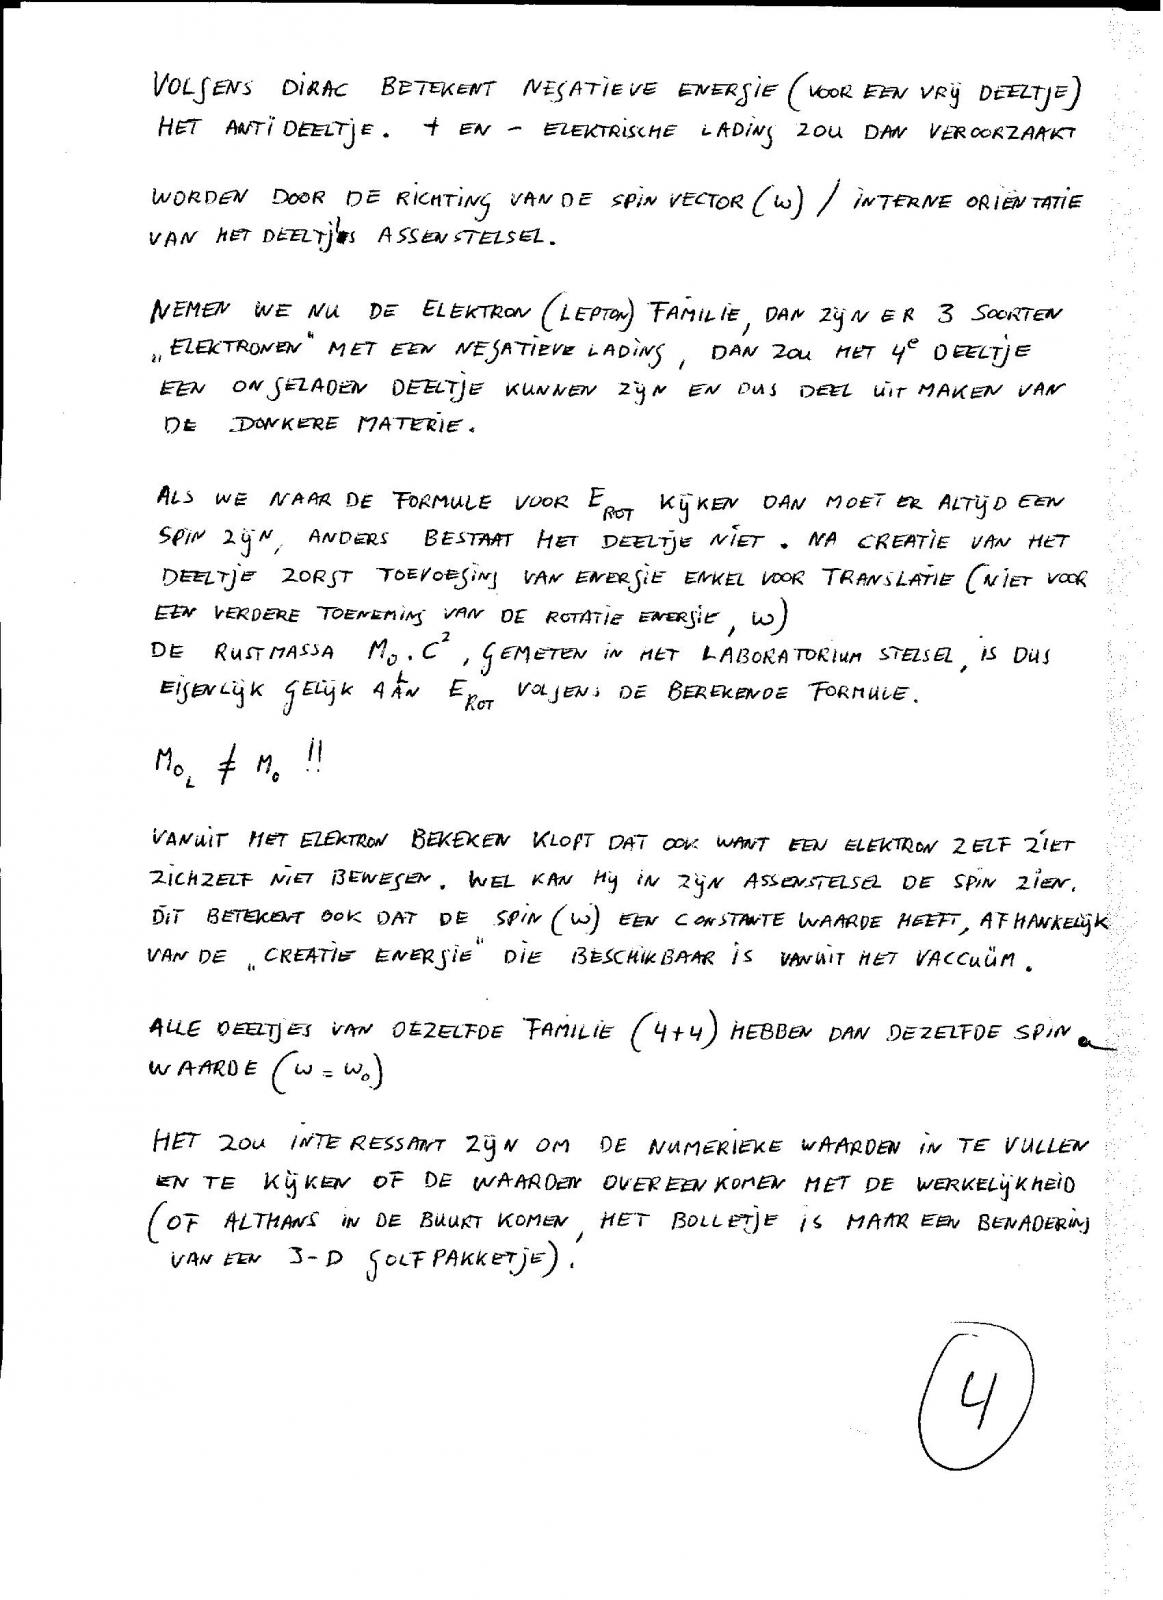 VOLGENS DIRAC BETEKENT NEGATIEVE ENERGIE (VOOR EEN VRIJ DEELTJE)
HET ANTI DEELTJE. + EN - ELEKTRISCHE LADING ZOU DAN VEROORZAAKT
WORDEN DOOR DE RICHTING VAN DE SPIN VECTOR (ω) / INTERNE ORIËNTATIE
VAN HET DEELTJES ASSENSTELSEL.
NEMEN WE NU DE ELEKTRON (LEPTON) FAMILIE, DAN ZIJN ER 3 SOORTEN
„ELEKTRONEN" MET EEN NEGATIEVE LADING, DAN ZOU HET 4e DEELTJE
EEN ONGELADEN DEELTJE KUNNEN ZIJN EN DUS DEEL UIT MAKEN VAN
DE DONKERE MATERIE.
ALS WE NAAR DE FORMULE VOOR E_ROT KIJKEN DAN MOET ER ALTIJD EEN
SPIN ZIJN, ANDERS BESTAAT HET DEELTJE NIET. NA CREATIE VAN HET
DEELTJE ZORGT TOEVOEGING VAN ENERGIE ENKEL VOOR TRANSLATIE (NIET VOOR
EEN VERDERE TOENEMING VAN DE ROTATIE ENERGIE, ω)
DE RUSTMASSA M₀L.C², GEMETEN IN HET LABORATORIUM STELSEL, IS DUS
EIGENLIJK GELIJK AAN E_ROT VOLGENS DE BEREKENDE FORMULE.
M₀L ≠ M₀ !!
VANUIT HET ELEKTRON BEKEKEN KLOPT DAT OOK WANT EEN ELEKTRON ZELF ZIET
ZICHZELF NIET BEWEGEN. WEL KAN HIJ IN ZIJN ASSENSTELSEL DE SPIN ZIEN.
DIT BETEKENT OOK DAT DE SPIN (ω) EEN CONSTANTE WAARDE HEEFT, AFHANKELIJK
VAN DE „CREATIE ENERGIE" DIE BESCHIKBAAR IS VANUIT HET VACCUÜM.
ALLE DEELTJES VAN DEZELFDE FAMILIE (4+4) HEBBEN DAN DEZELFDE SPIN
WAARDE (ω = ω₀)
HET ZOU INTERESSANT ZIJN OM DE NUMERIEKE WAARDEN IN TE VULLEN
EN TE KIJKEN OF DE WAARDEN OVEREENKOMEN MET DE WERKELIJKHEID
(OF ALTHANS IN DE BUURT KOMEN, HET BOLLETJE IS MAAR EEN BENADERING
VAN EEN 3-D GOLFPAKKETJE).
4